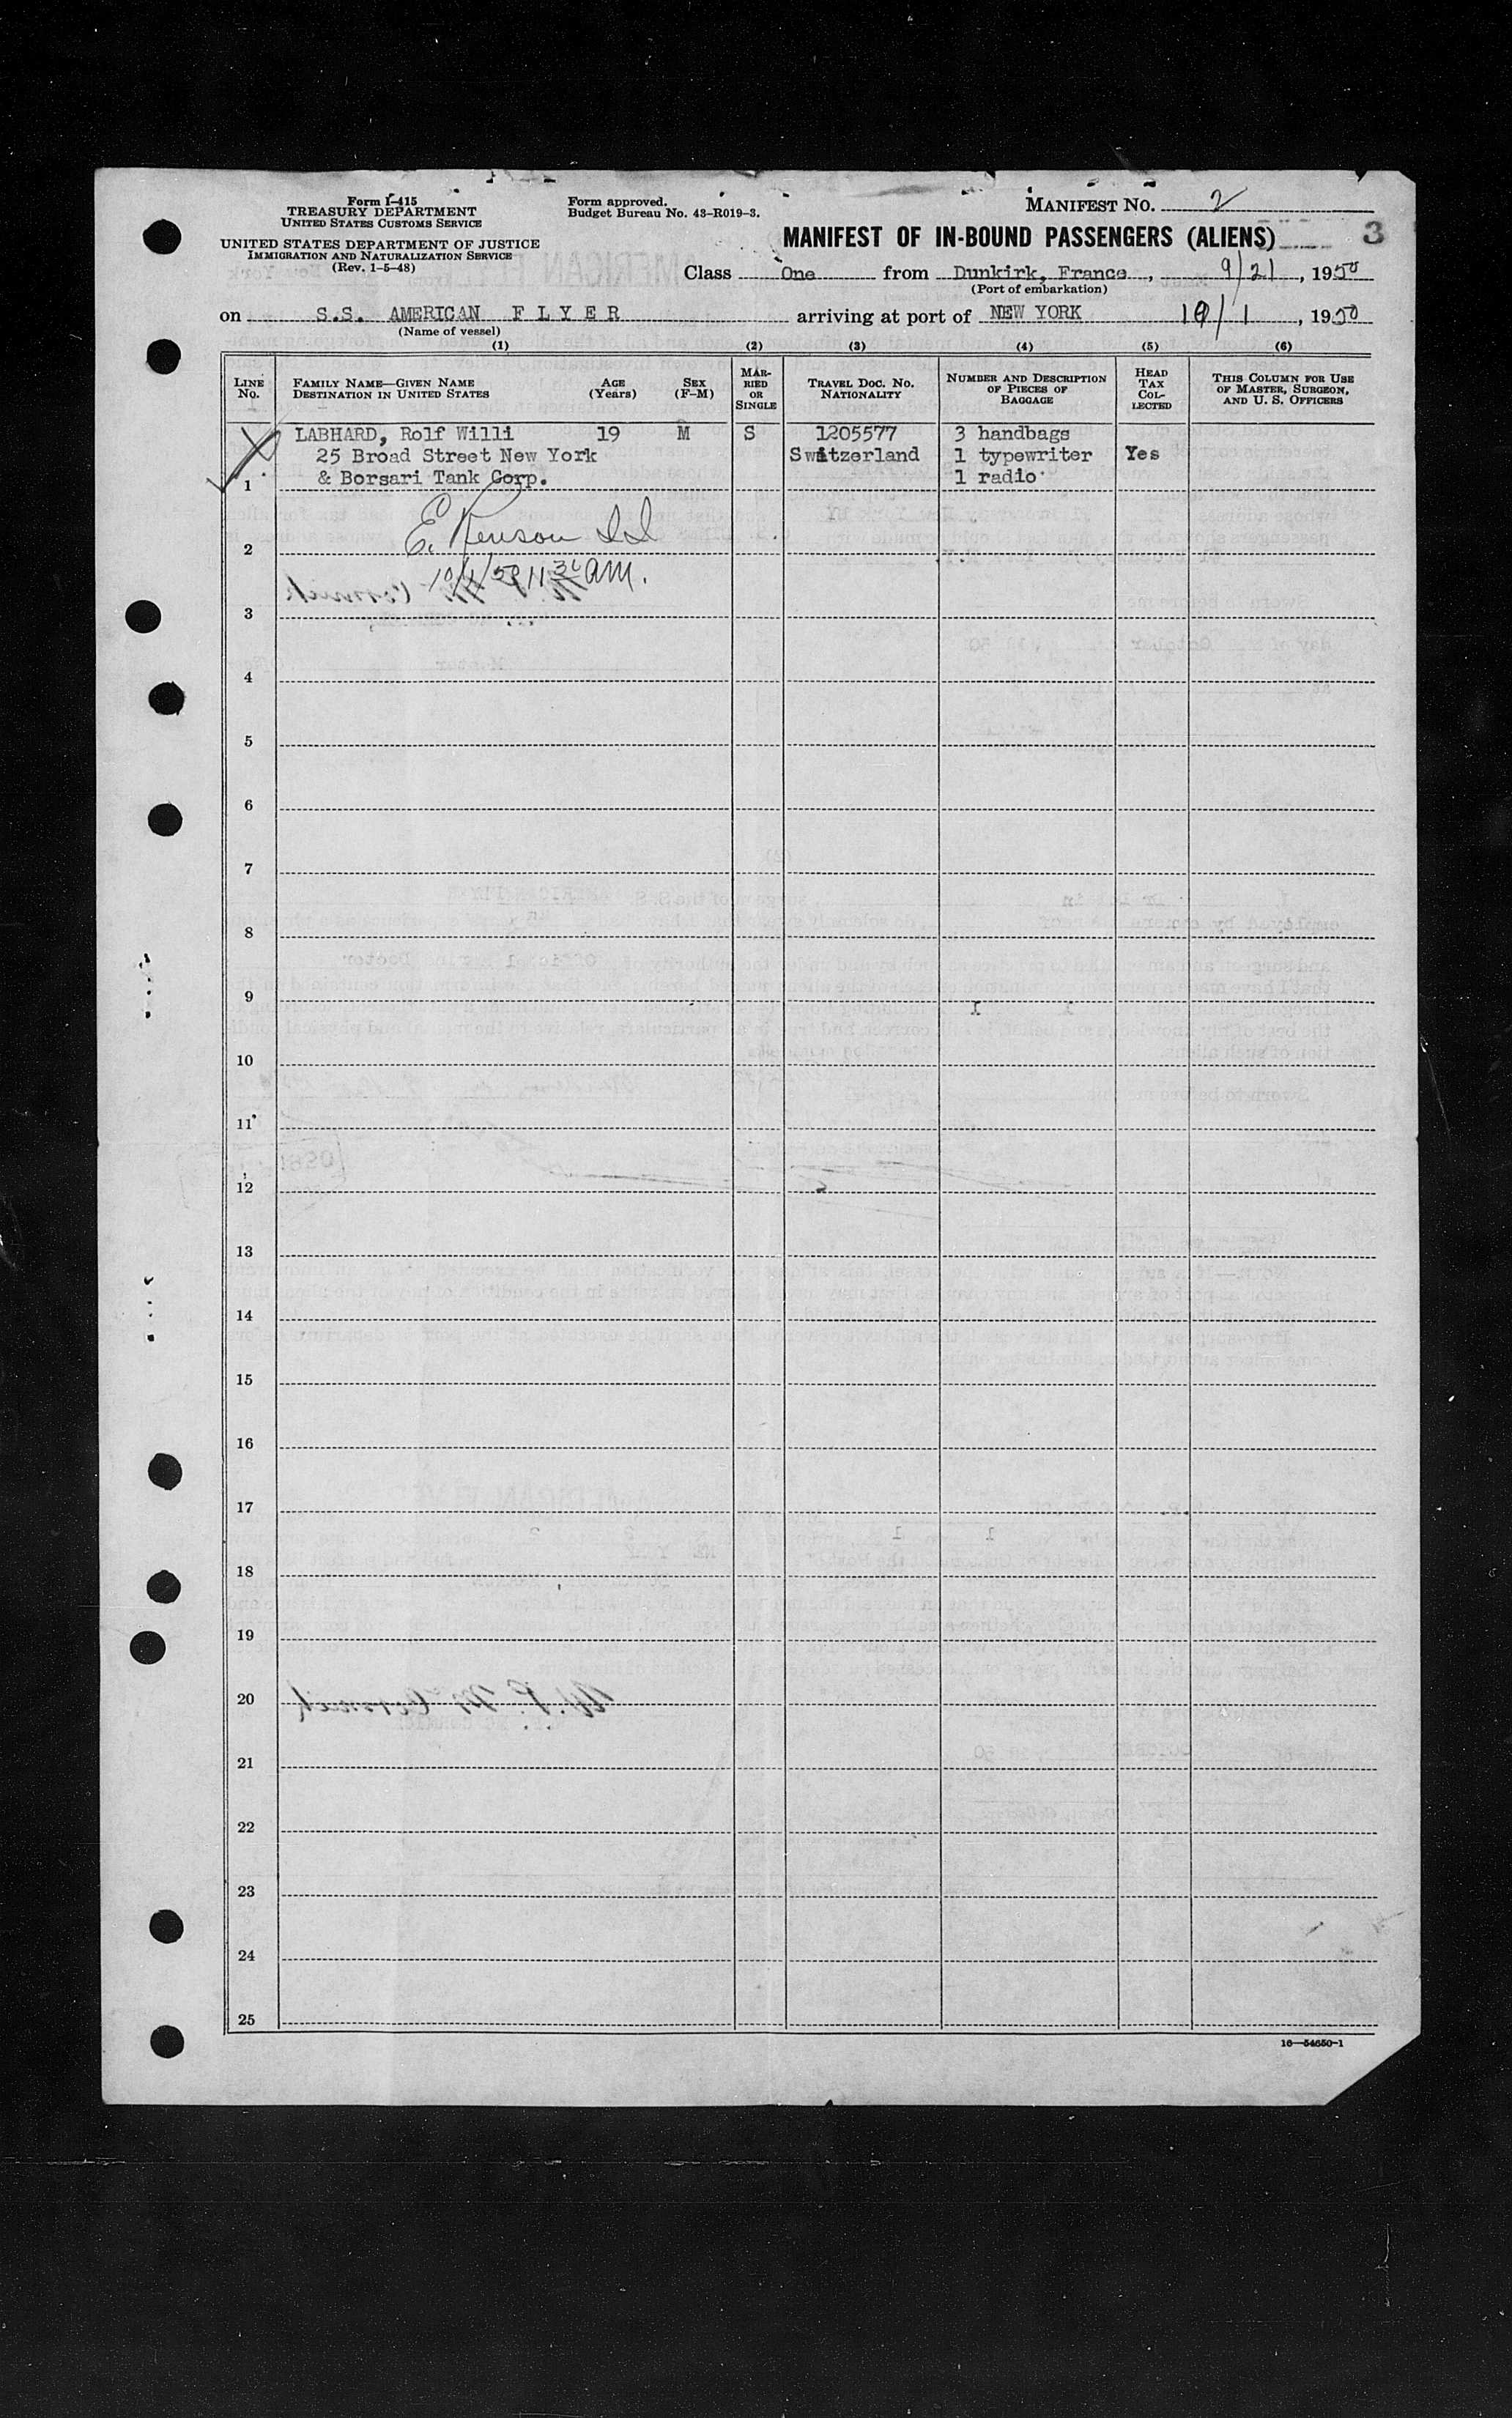 Form I-415
TREASURY DEPARTMENT
UNITED STATES CUSTOMS SERVICE
UNITED STATES DEPARTMENT OF JUSTICE
IMMIGRATION AND NATURALIZATION SERVICE
(Rev. 1-5-48)
Form approved.
Budget Bureau No. 43-R019-3.
MANIFEST NO. 2
MANIFEST OF IN-BOUND PASSENGERS (ALIENS) 3
Class One from Dunkirk, France, 9/21, 1950
(Port of embarkation)
on S.S. AMERICAN FLYER arriving at port of NEW YORK 10/1, 1950
(Name of vessel)
(1) (2) (3) (4) (5) (6)
LINE NO. FAMILY NAME—GIVEN NAME DESTINATION IN UNITED STATES AGE (Years) SEX (F-M) MARRIED OR SINGLE TRAVEL DOC. NO. NATIONALITY NUMBER AND DESCRIPTION OF PIECES OF BAGGAGE HEAD TAX COLLECTED THIS COLUMN FOR USE OF MASTER, SURGEON, AND U. S. OFFICERS
LABHARD, Rolf Willi 19 M S 1205577 3 handbags
25 Broad Street New York Switzerland 1 typewriter Yes
1 & Borsari Tank Corp. 1 radio
2 E.
10/1/50 11 30 am.
3
4
5
6
7
8
9
10
11
12
13
14
15
16
17
18
19
20
21
22
23
24
25
16—54650-1